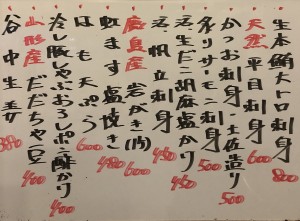 生本鮪大トロ刺身 800
天然 平目刺身 600
かつお刺身・土佐造り 500
炙りサーモン刺身 500
活生だこ胡麻塩かり 450
活帆立刺身 450
鹿島産 岩がき(内) 600
虹ます塩焼き 480
はも天ぷら 600
冷し豚しゃぶおろしポン酢かり 400
山形産 だだちゃ豆 400
谷中生姜 380